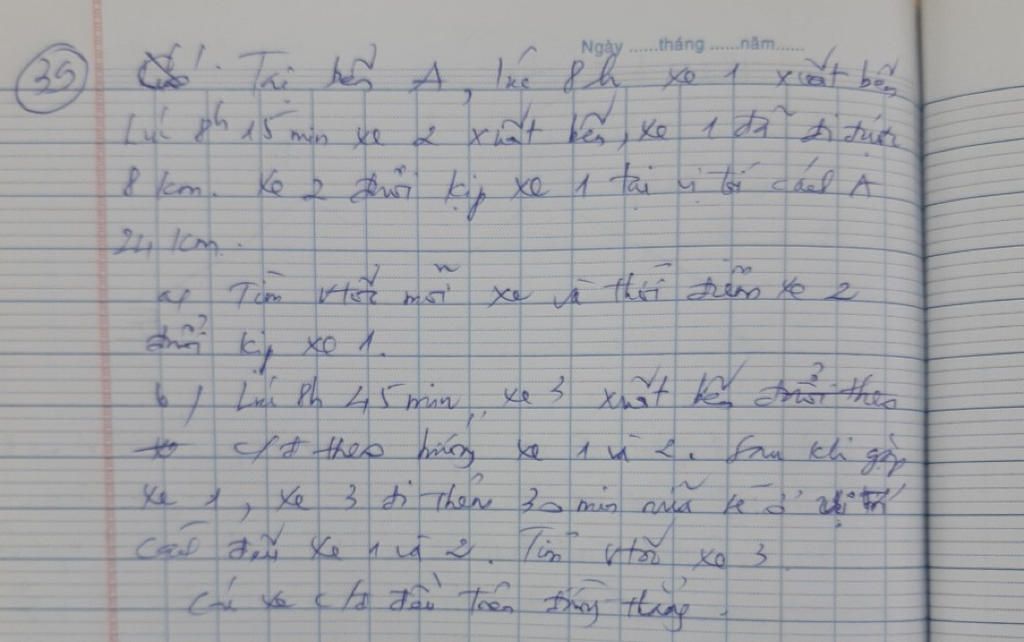 Ngày ......tháng ......năm......
35 Tại bến A, lúc 8h xe 1 xuất bến
Lúc 8h 15 min xe 2 xuất bến, xe 1 đã đi được
8 km. Xe 2 đuổi kịp xe 1 tại vị trí cách A
24 km.
a) Tìm vtốc mỗi xe và thời điểm xe 2
đuổi kịp xe 1.
b) Lúc 8h 45 min, xe 3 xuất bến đuổi theo
c/đ theo hướng xe 1 và 2. Sau khi gặp
xe 1, xe 3 đi thêm 30 min nữa sẽ ở vị trí
cách đều xe 1 và 2. Tìm vtốc xe 3
Các xe c/đ đều trên đường thẳng.